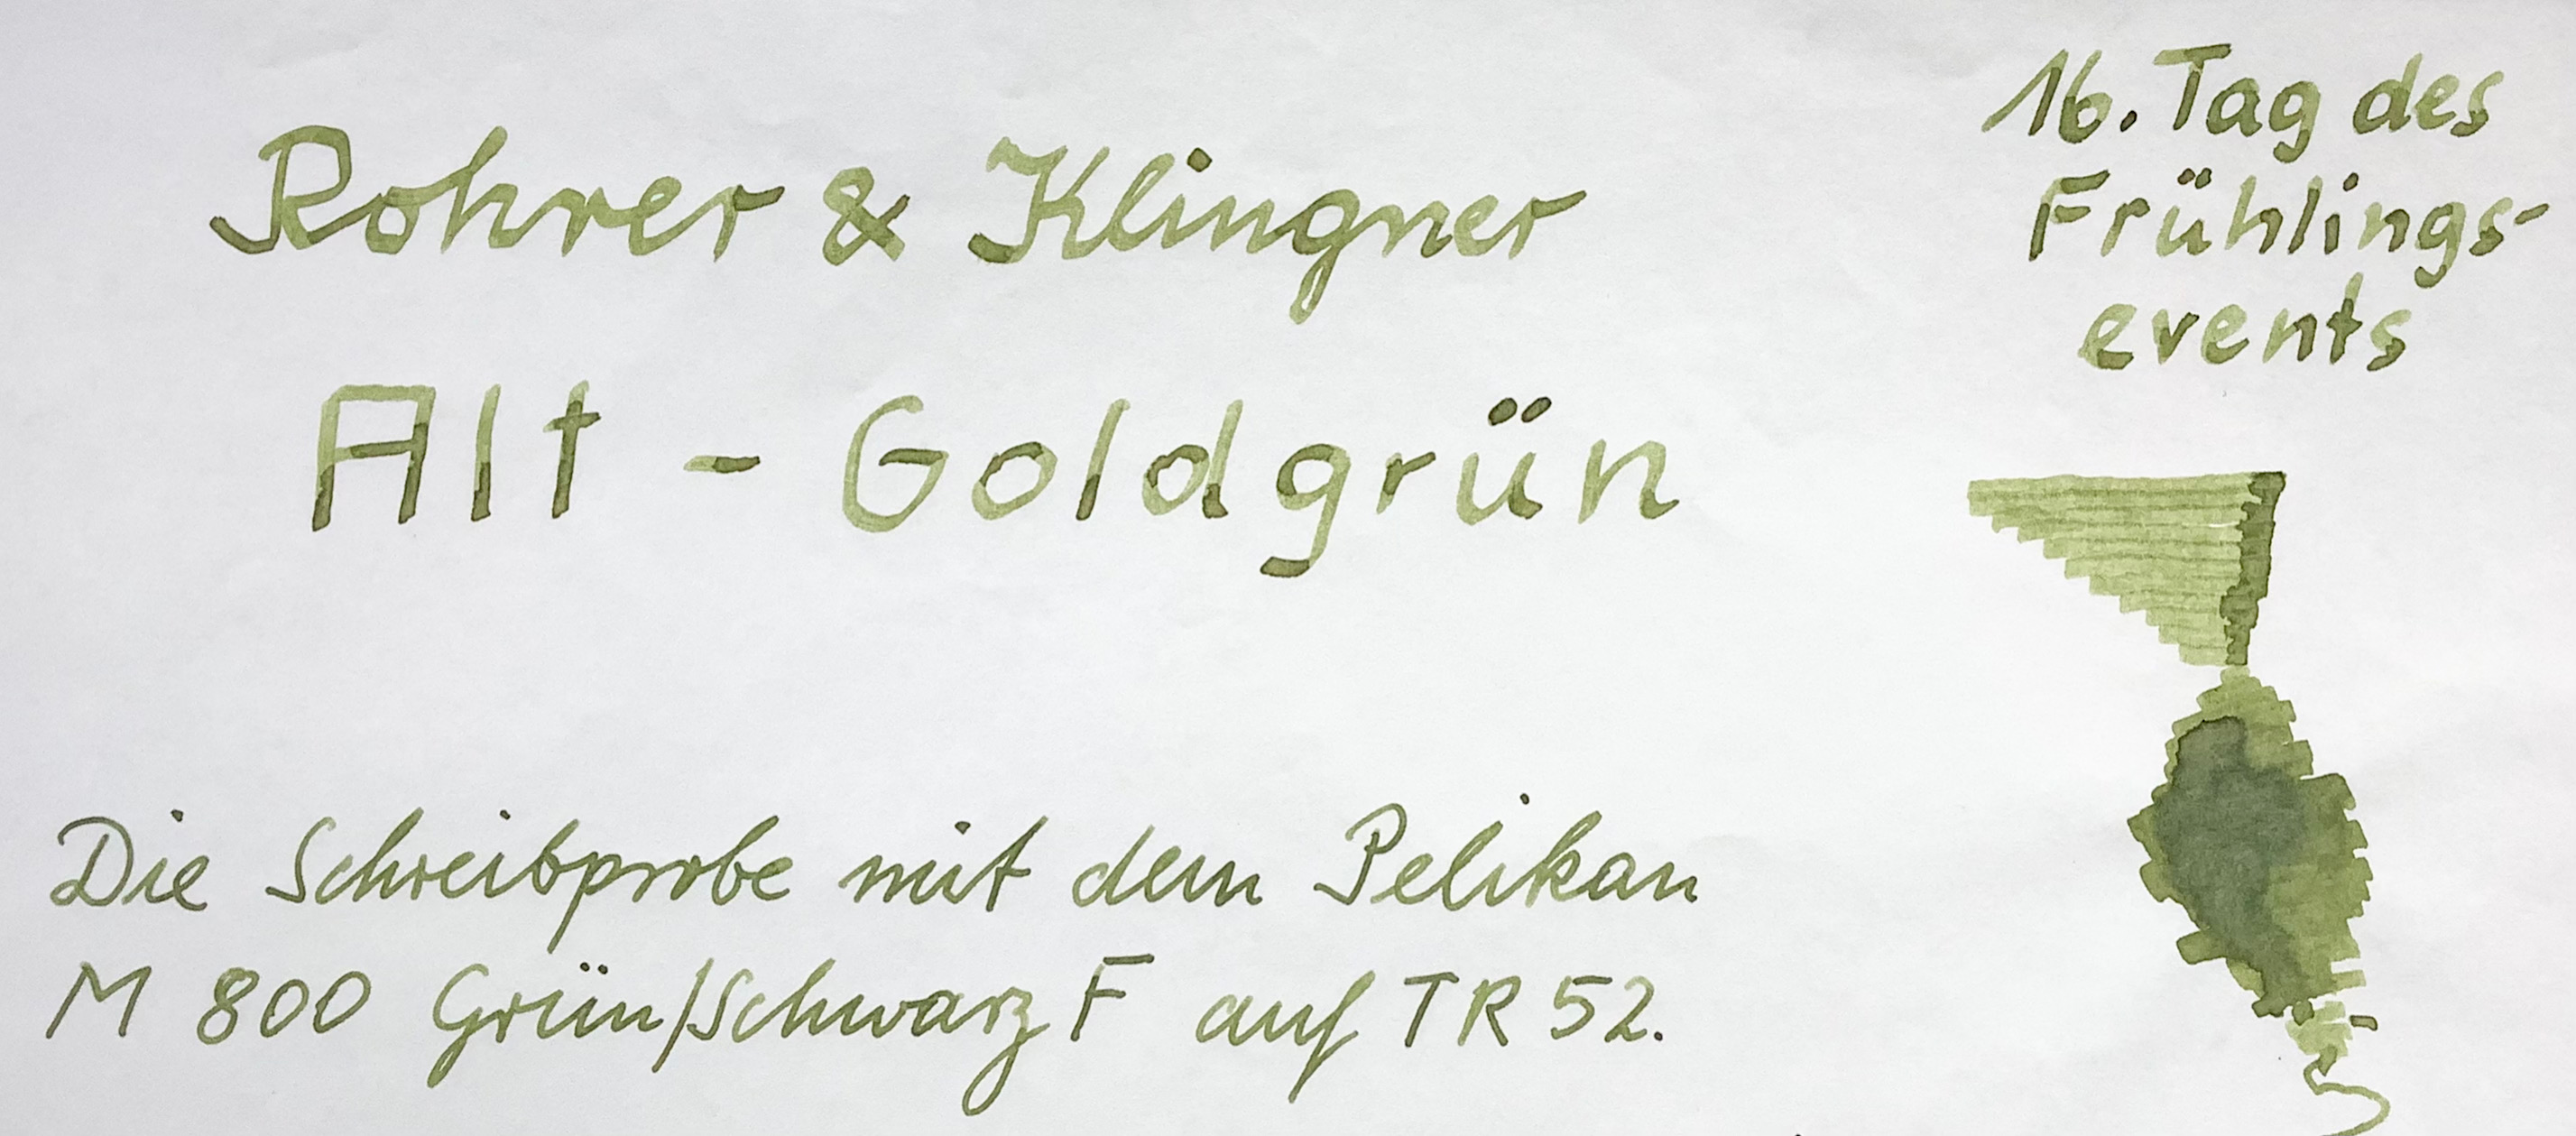 Rohrer & Klingner
Alt - Goldgrün
16. Tag des
Frühlings-
events
Die Schreibprobe mit dem Pelikan
M 800 Grün/Schwarz F auf TR 52.